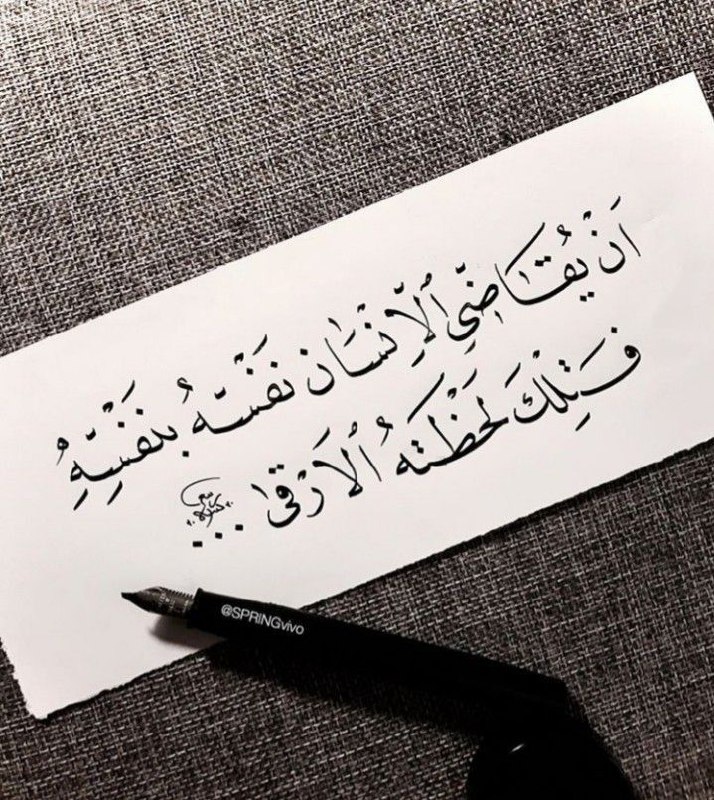 اَنْ يُقَاضِّي ٱلاِّنْسَان نَفَسَّهُ بِنَفَسِّهِ
فَتِلْكَ لَحْظَتَهُ ٱلاَرْقى ...
@SPRINGvivo